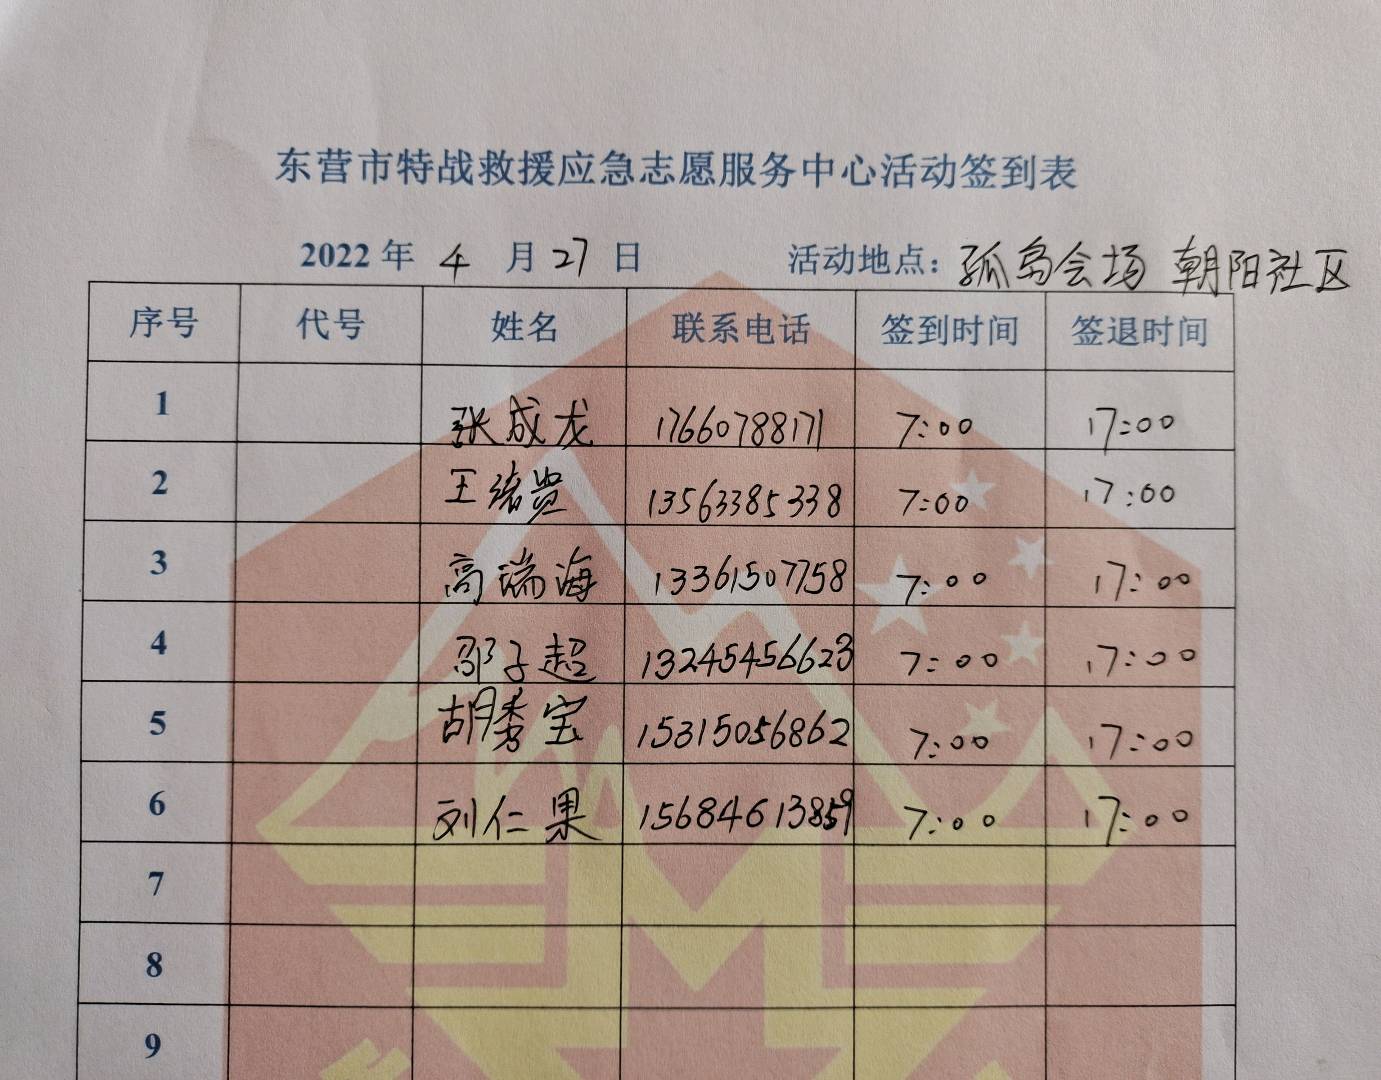 东营市特战救援应急志愿服务中心活动签到表
2022 年 4 月 27 日 活动地点：孤岛会场 朝阳社区
序号 代号 姓名 联系电话 签到时间 签退时间
1 张成龙 17660788171 7:00 17:00
2 王绪贵 13563385338 7:00 17:00
3 高瑞海 13361507758 7:00 17:00
4 邵子超 13245456623 7:00 17:00
5 胡秀宝 15315056862 7:00 17:00
6 刘仁果 15684613859 7:00 17:00
7
8
9